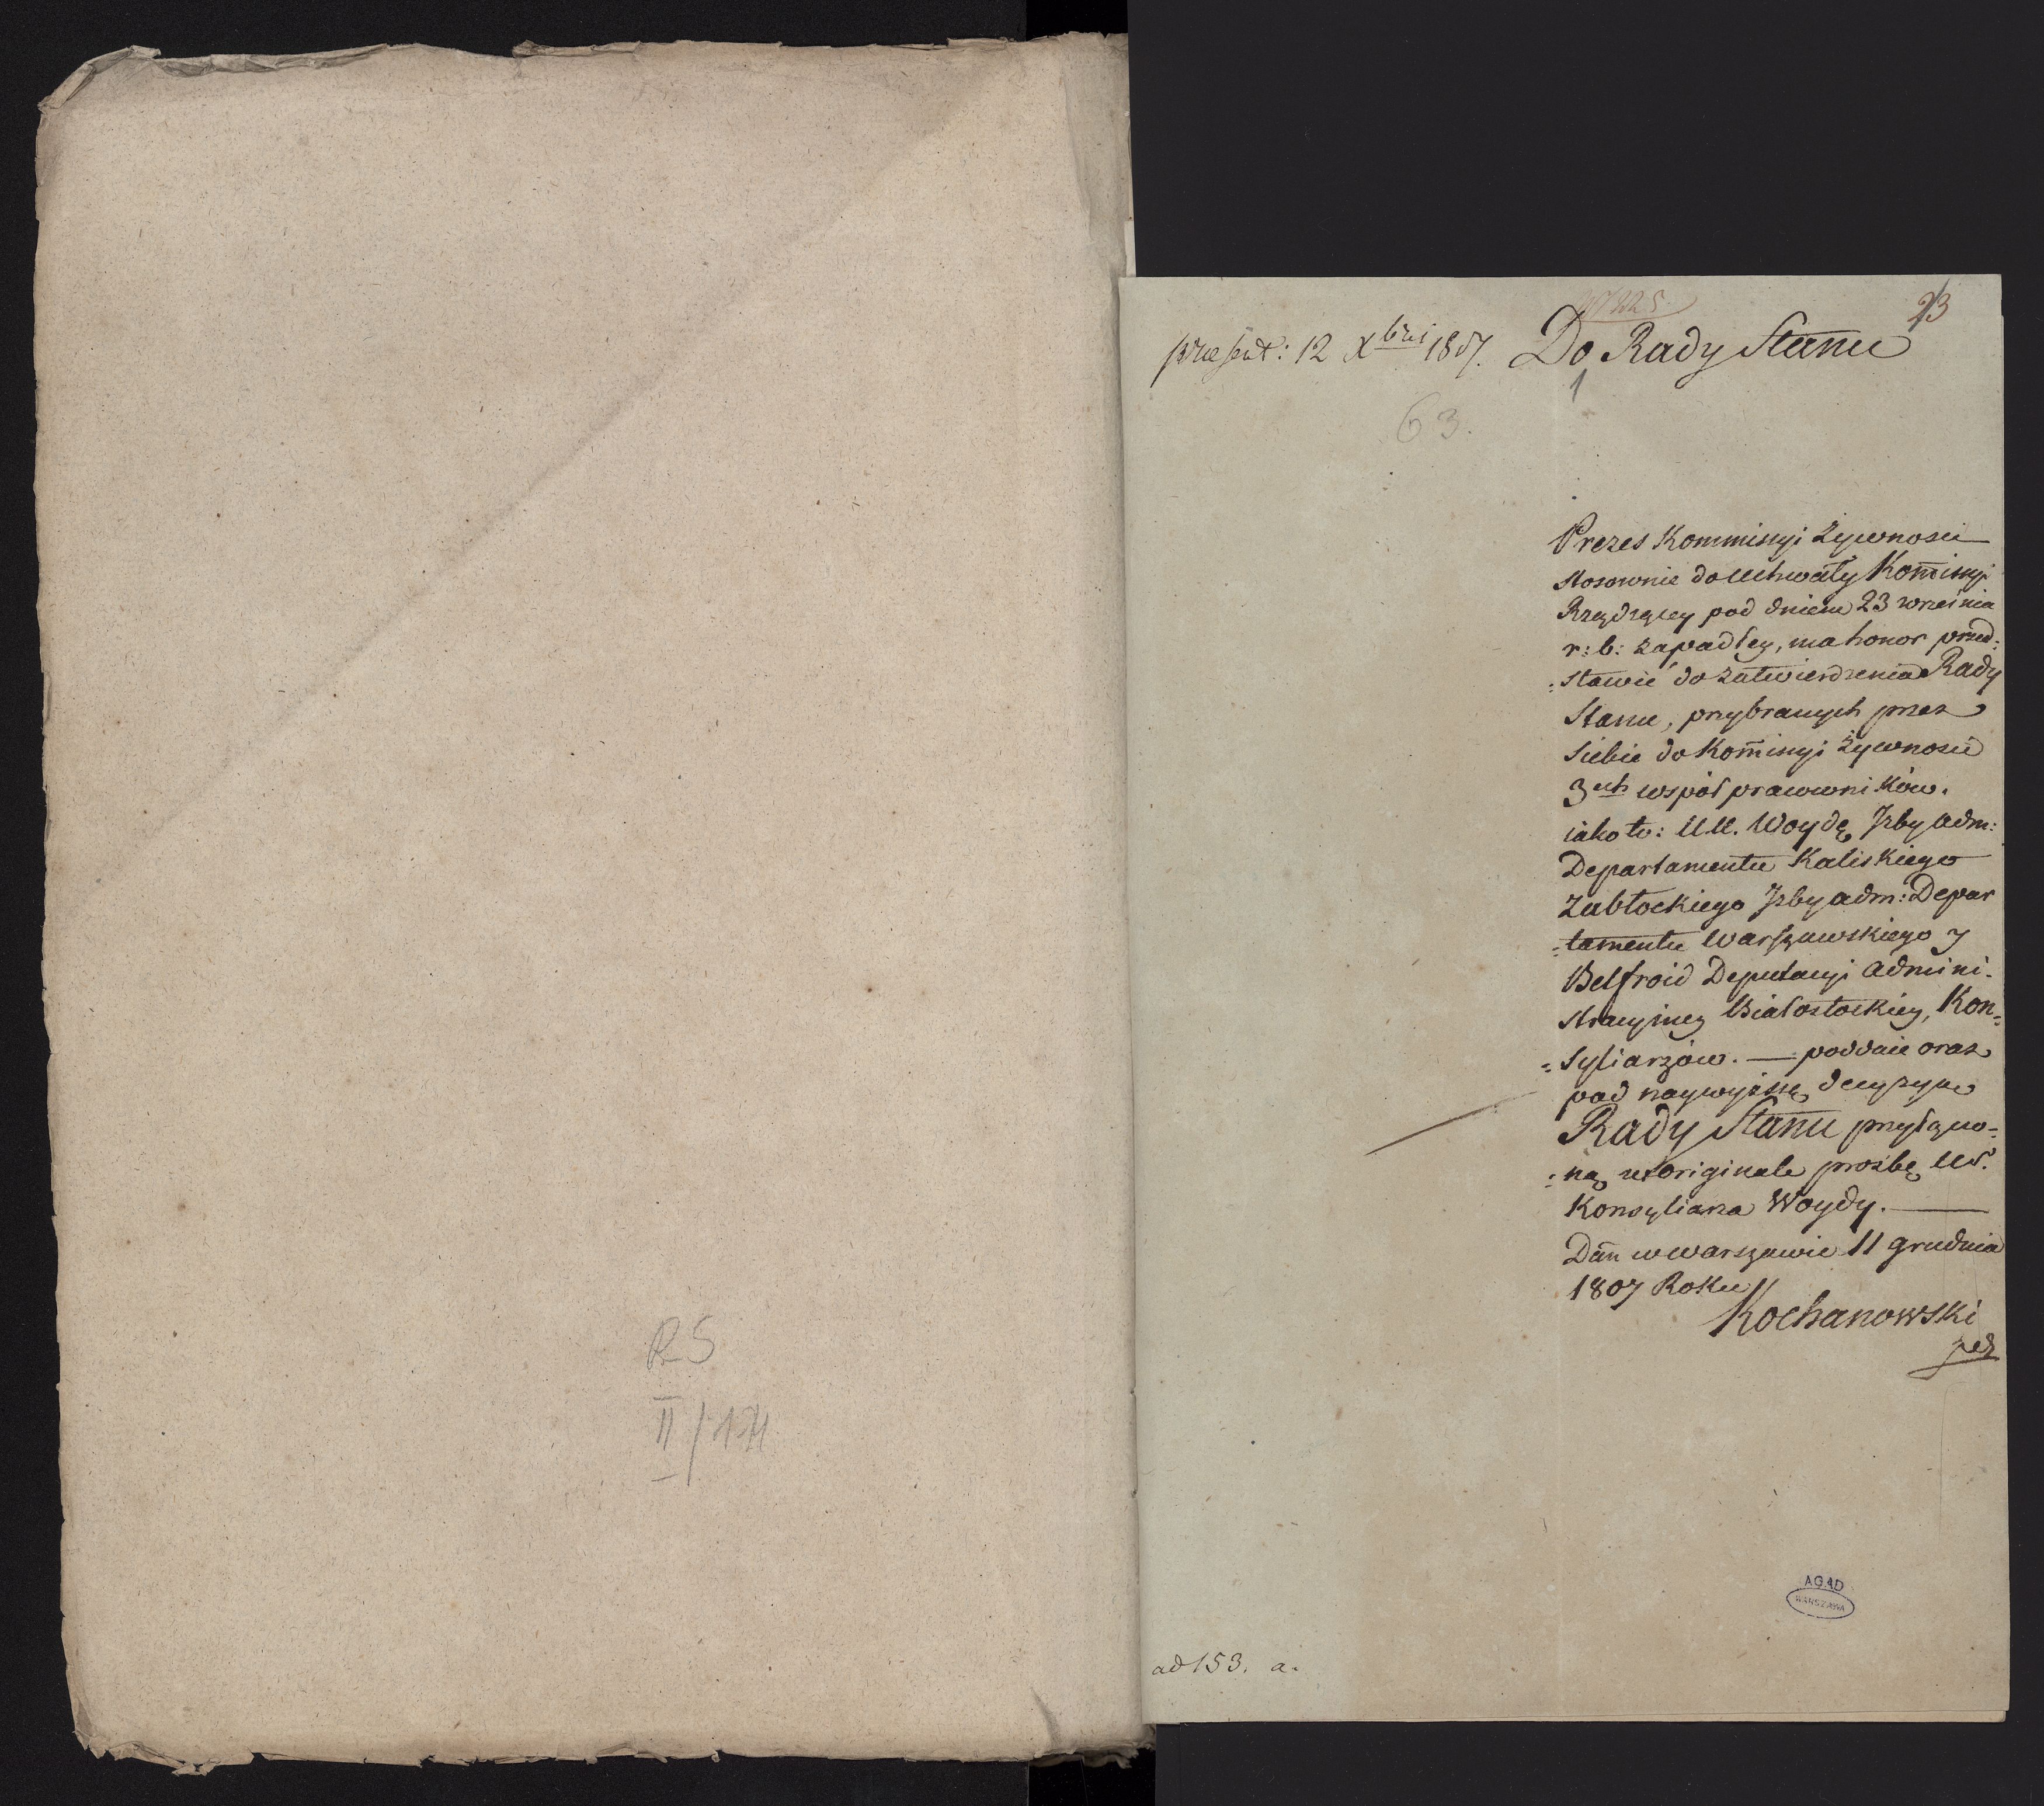 RS
II/174
23
praesent: 12 Xbris 1807. Do Rady Stanu
1
63.
Prezes Kommissyi Żywnosci
stosownie do Uchwały Kom̄issyi
Rządzącey pod dniem 23 września
r: b: zapadłey, ma honor przed:
:stawić do zatwierdzenia Rady
Stanu, przybranych przez
siebie do Kom̄issyi Żywnosci
3ech wspołpracowników.
iako to: UU. Woydę Jzby Adm:
Departamentu Kaliskiego
Zabłockiego Jzby adm: Depar
=tamentu Warszawskiego y
Belfroid Deputacyi Admini-
stracyiney Białostockiey, Kon=
=syliarzów. — poddaie oraz
pod naywyższą decyzyą
Rady Stanu przyłączo=
:ną w originale prozbę Ur.
Konsyliarza Woydy. —
Dan̄ w Warszawie 11 grudnia
1807 Roku
Kochanowski
AGAD
WARSZAWA
ad 153. a.